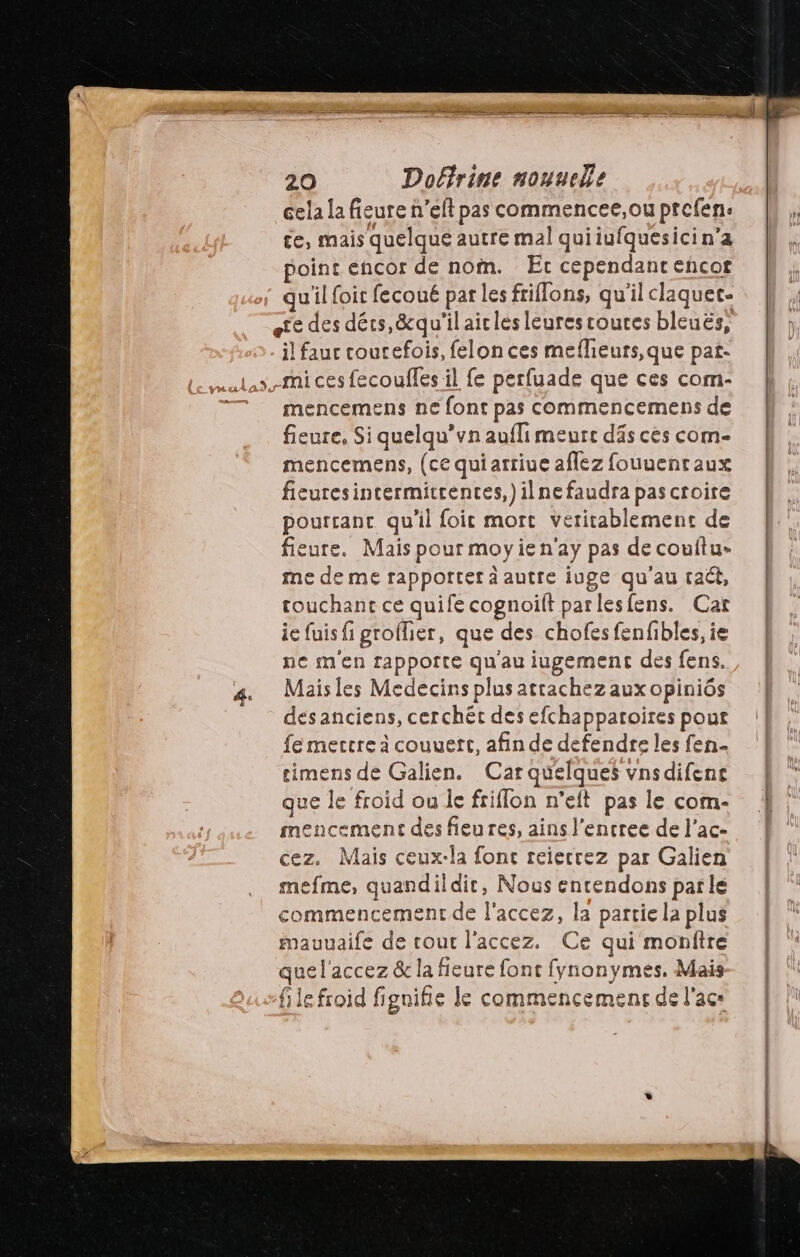 20 Doctrine nouuelle
cela la fieure n'est pas commencee, ou presen-
te, mais quelque autre mal qui iusques ici n'a
point encor de nom. Et cependant encor
qu'il soit secoué par les frissons, qu'il claquet-
te des déts, & qu'il ait les leures toutes bleuës,
il faut toutefois, selon ces messieurs, que par-
mi ces secousses il se persuade que ces com-
mencemens ne sont pas commencemens de
fieure. Si quelqu'vn aussi meurt dãs ces com-
mencemens, (ce qui arriue assez souuent aux
fieures intermittentes,) il ne faudra pas croire
pourtant qu'il soit mort veritablement de
fieure. Mais pour moy ie n'ay pas de coustu-
me de me rapporter à autre iuge qu'au tact,
touchant ce qui se cognoist par les sens. Car
ie suis si grossier, que des choses sensibles, ie
ne m'en rapporte qu'au iugement des sens.
4. Mais les Medecins plus attachez aux opiniõs
des anciens, cerchẽt des eschappatoires pour
se mettre à couuert, afin de defendre les sen-
timens de Galien. Car quelques vns disent
que le froid ou le frisson n'est pas le com-
mencement des fieures, ains l'entree de l'ac-
cez. Mais ceux-la sont reiettez par Galien
mesme, quand il dit, Nous entendons par le
commencement de l'accez, la partie la plus
mauuaise de tout l'accez. Ce qui monstre
que l'accez & la fieure sont synonymes. Mais
si le froid signifie le commencement de l'ac-